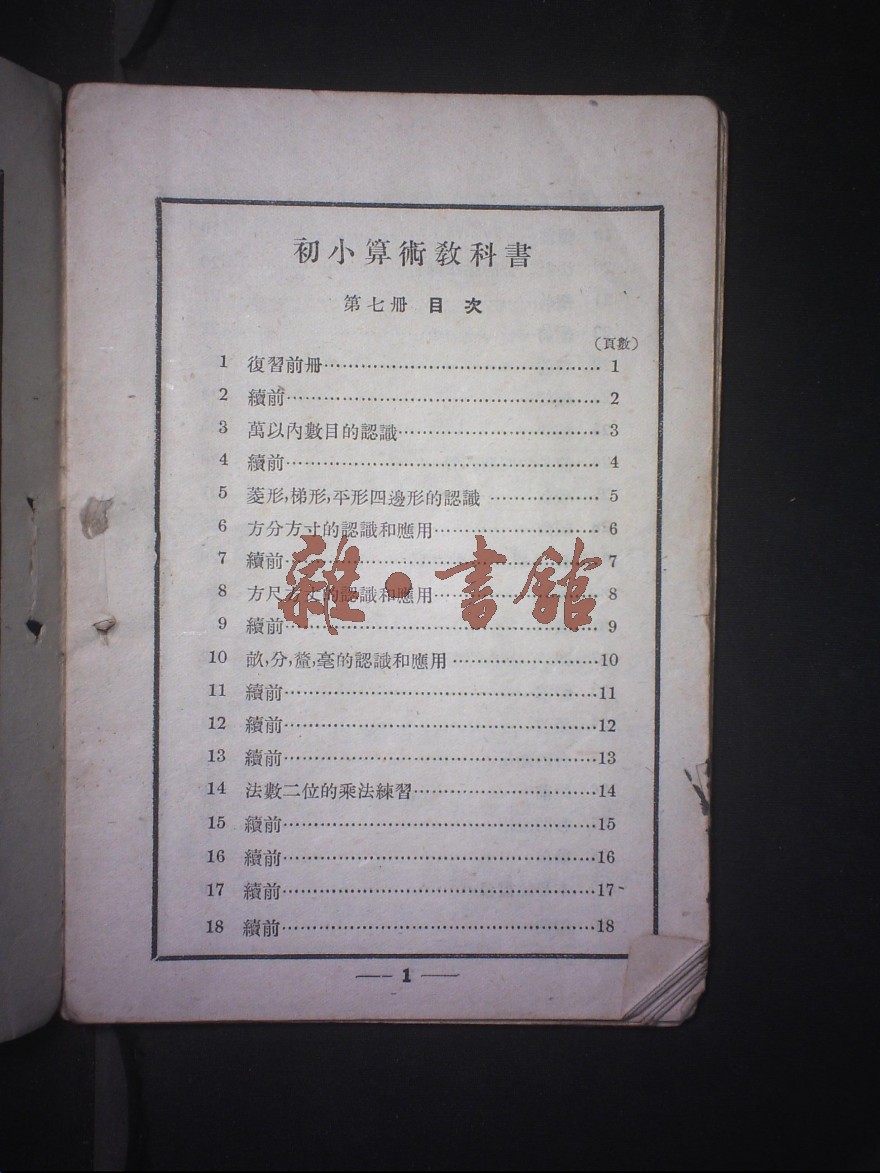 初小算術教科書
第七册 目次
(頁數)
1 復習前册…………………………………………1
2 續前…………………………………………2
3 萬以內數目的認識…………………………3
4 續前…………………………………………4
5 菱形,梯形,平形四邊形的認識………………5
6 方分方寸的認識和應用………………………6
7 續前…………………………………………7
8 方尺方丈的認識和應用………………………8
9 續前…………………………………………9
10 畝,分,釐,毫的認識和應用…………………10
11 續前…………………………………………11
12 續前…………………………………………12
13 續前…………………………………………13
14 法數二位的乘法練習…………………………14
15 續前…………………………………………15
16 續前…………………………………………16
17 續前…………………………………………17
18 續前…………………………………………18
— 1 —
雜·書館